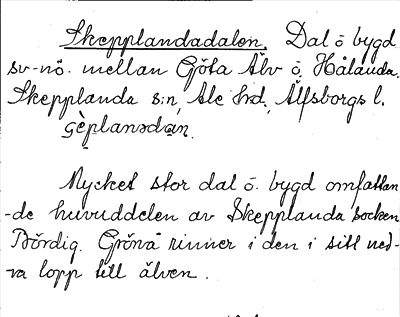 Skepplandadalen. Dal ö bygd
sv-nö. mellan Göta Älv ö. Hålanda.
Skepplanda s:n, Ale hd, Älfsborgs l.
Mycket stor dal ö. bygd omfattan
-de huvuddelen av Skepplanda socken
Bördig. Grönå rinner i den i sitt ned-
ra lopp till älven.